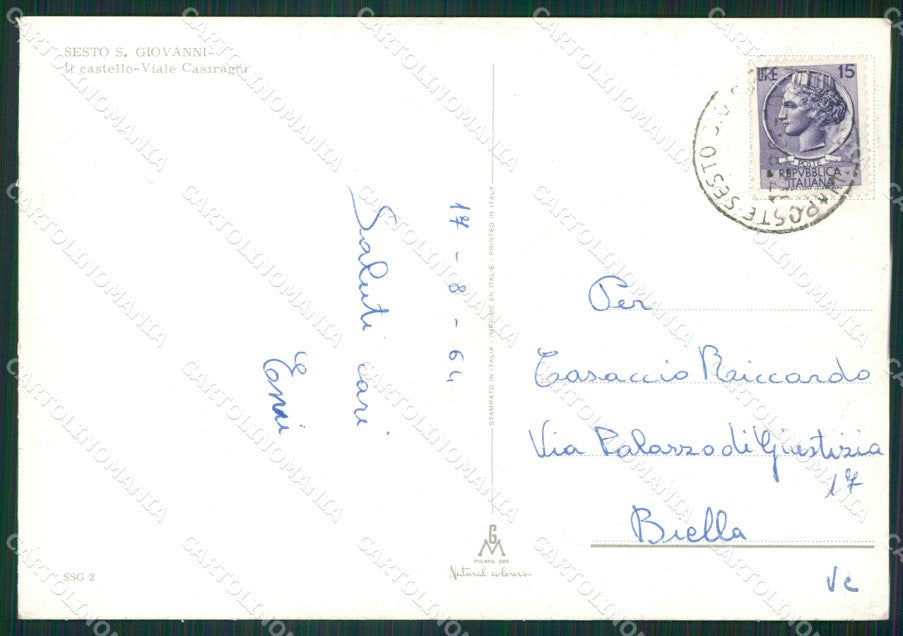 SESTO S. GIOVANNI-
Il castello-Viale Casiraghi
LIRE 15
POSTE
REPVBBLICA
ITALIANA
POSTE SESTO
17-8-64
Saluti cari
STAMPATO IN ITALIA - IMPRIMÉ EN ITALIE - PRINTED IN ITALY
Per
Casaccio Riccardo
Via Palazzo di Giustizia
17
Biella
Vc
GM
milano
Natural colours
SSG 2
CARTOLINOMANIA